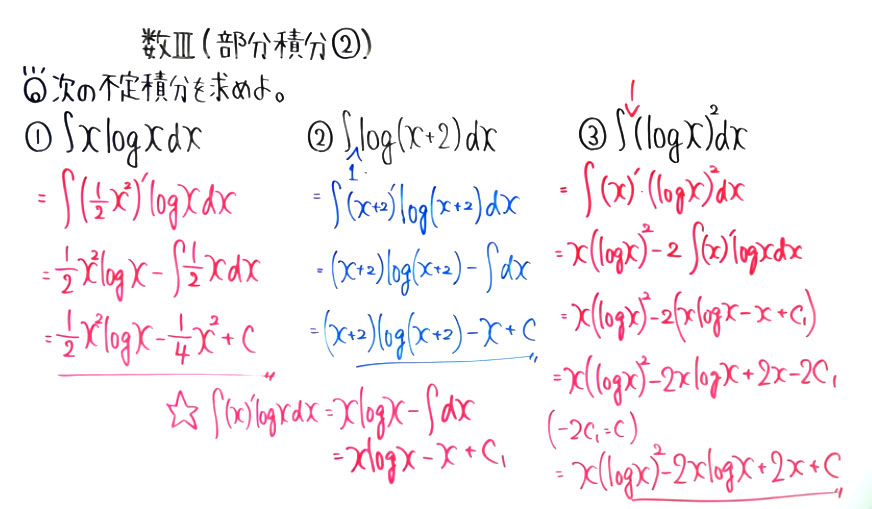 数Ⅲ(部分積分②)
次の不定積分を求めよ。
① ∫x log x dx
= ∫(1/2 x²)' log x dx
= 1/2 x² log x − ∫1/2 x dx
= 1/2 x² log x − 1/4 x² + C
② ∫log(x+2) dx
1・
= ∫(x+2)' log(x+2) dx
= (x+2)log(x+2) − ∫dx
= (x+2)log(x+2) − x + C
☆ ∫(x)' log x dx = x log x − ∫dx
= x log x − x + C₁
1
③ ∫(log x)² dx
= ∫(x)'・(log x)² dx
= x(log x)² − 2∫(x)' log x dx
= x(log x)² − 2(x log x − x + C₁)
= x(log x)² − 2x log x + 2x − 2C₁
(−2C₁ = C)
= x(log x)² − 2x log x + 2x + C